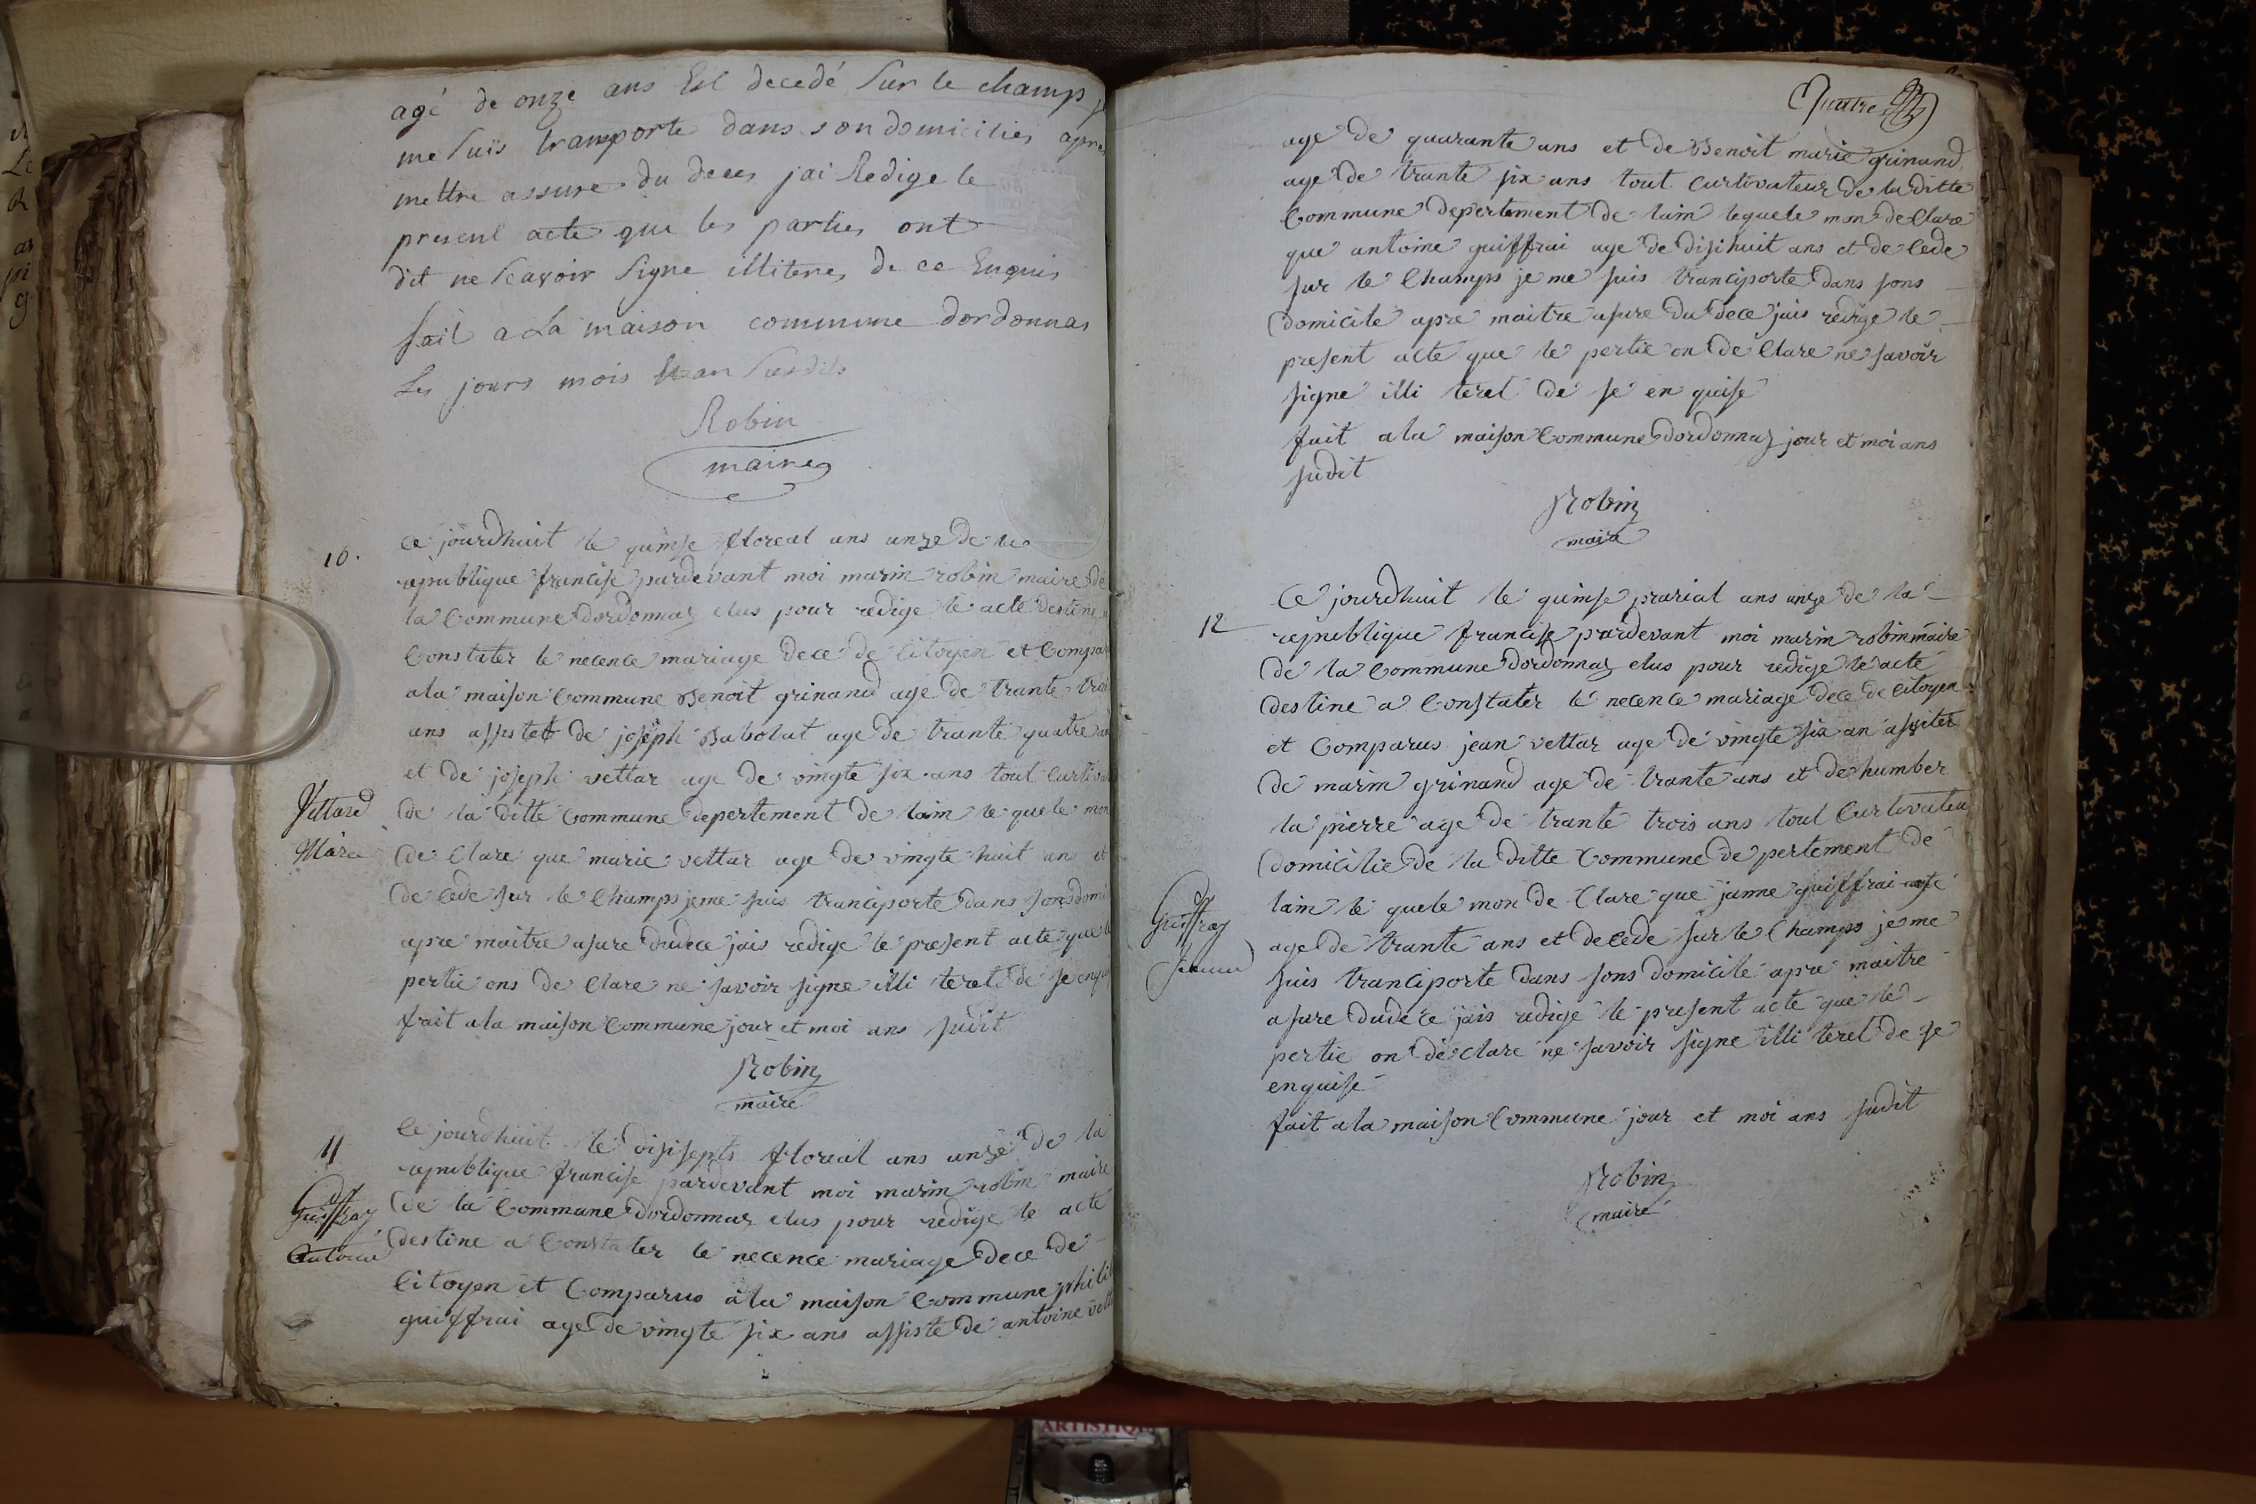 agé de onze ans Est decedé Sur le champ je
me suis tramporte dans son domicilies apres
mettre assure du deces jai Redige le
present acte que les parties ont
dit ne scavoir signe illiteres de ce Enquis
fait a La maison commune dordonnas
Les jours mois et an susdits
Robin
maire
10.
Ce jourdhuit le quinse floreal ans unze de la
republique francise pardevant moi marin robin maire de
la Commune dordonnaz elus pour redige le acte destine a
Constater le necence mariage dece de Citoyen et Compar
a la maison Commune Benoit grinand age de trante troi
ans assistet de joseph Babolat age de trante quatre an
et de joseph vettar age de vingte six ans tout Curtiva
Vettard
Marie
de la ditte Commune depertement de lain le quele mon
de Clare que marie vettar age de vingte huit an et
de cede sur le Champs je me suis tranciporte dans sons domi
apre maitre asure du dece jais redige le present acte que l
pertie ons de Clare ne savoir signe illi teret de se enqui
fait a la maison Commune jour et moi ans sudit
Robin
maire
11
Ce jourdhuit le disisepts floreal ans unze de la
republique francise pardevant moi marin robin maire
Guiffray
Antoine
de la Commune dordonnaz elus pour redige le acte
destine a Constater le necence mariage dece de
Citoyen et Comparus a la maison Commune phili
guiffrai age de vingte six ans assiste de antoine vett
Quatre
age de quarante ans et de Benoit marie grinand
age de trante six ans tout Curtivateur de la ditte
Commune depertement de lain lequele mon de Clare
que antoine guiffrai age de disihuit ans et de Cede
sur le Champs je me suis tranciporte dans sons
domicile apre maitre asure du dece jais redige le
present acte que le pertie on de Clare ne savoir
signe illi teret de se en quise
fait a la maison Commune dordonnaz jour et moi ans
sudit
Robin
maire
12
Ce jourdhuit le quinse prarial ans unze de la
republique francise pardevant moi marin robin maire
de la Commune dordonnaz elus pour redige le acte
destine a Constater le necence mariage dece de Citoyen
et Comparus jean vettar age de vingte six an assiter
de marin grinand age de trante ans et de humber
la pierre age de trante trois ans tout Curtivateu
domicilie de la ditte Commune de pertement de
Guiffray
Jeanne
lain le quele mon de Clare que janne guiffrai age
age de trante ans et de cede sur le Champs je me
suis tranciporte dans sons domicile apre maitre
asure du dece jais redige le present acte que le
pertie on de clare ne savoir signe illi teret de se
enquise
fait a la maison Commune jour et moi ans sudit
Robin
maire
ARTISTIQU